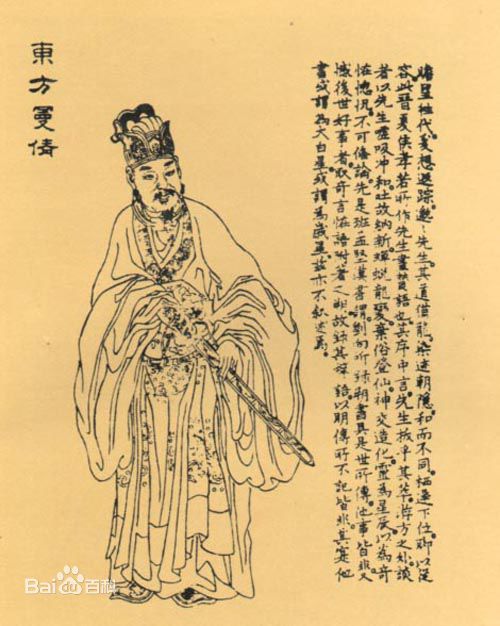 東方曼倩
瞻望往代爰想遐踪邈〻先生其道猶龍染迹朝隱和而不同栖遲下位聊以從
容此晉夏侯孝若所作先生畫贊語也其序中言先生拔乎其萃游方之外談
者以先生噓吸冲和吐故納新蟬蛻龍變棄俗登仙神交造化靈為星辰此為奇
怪惚恍不可備論先是班孟堅漢書謂劉向所錄朔書具是世所傳他事皆非又
憾後世好事者取奇言怪語附著之朔故錄其辭語以明傳所不記皆非其實他
書或謂為大白星或謂為歲星茲亦不敘述焉
Bai百科